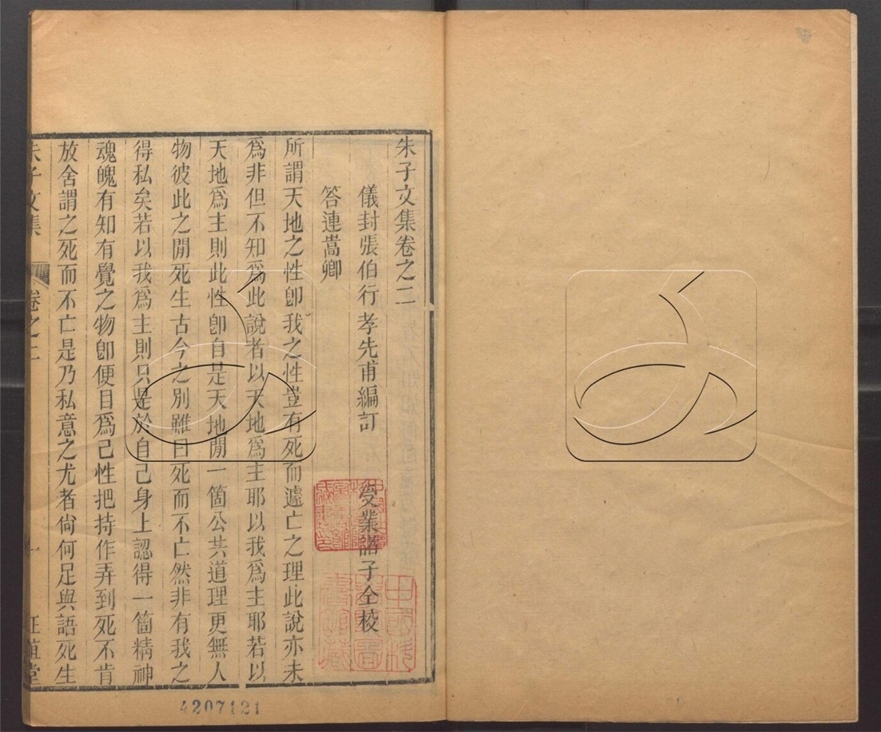 朱子文集卷之二
儀封張伯行孝先甫編訂 受業諸子全校
答連嵩卿
所謂天地之性卽我之性豈有死而遽亡之理此說亦未
爲非但不知爲此說者以天地爲主耶以我爲主耶若以
天地爲主則此性卽自是天地閒一箇公共道理更無人
物彼此之閒死生古今之別雖曰死而不亡然非有我之
得私矣若以我爲主則只是於自己身上認得一箇精神
魂魄有知有覺之物卽便目爲己性把持作弄到死不肯
放舍謂之死而不亡是乃私意之尤者尙何足與語死生
朱子文集 卷之二 一 正誼堂
4207121